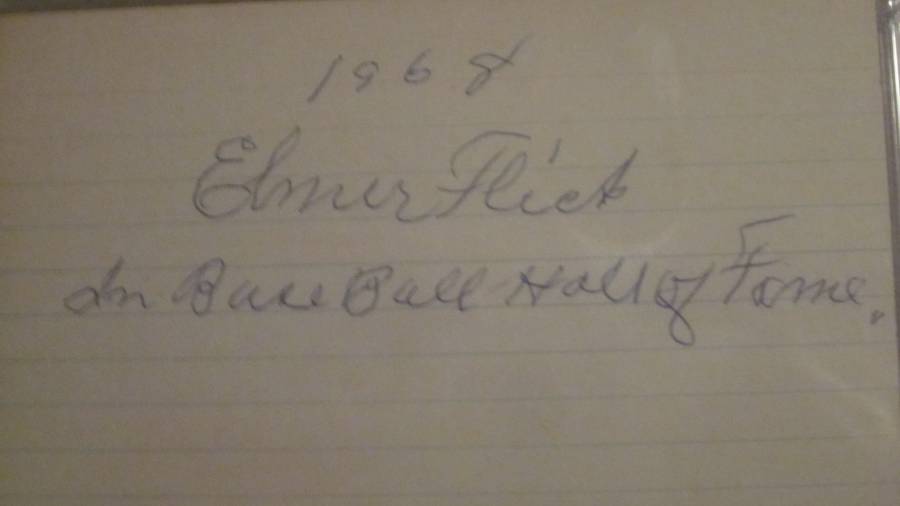 1968
Elmer Flick
In Base Ball Hall of Fame.